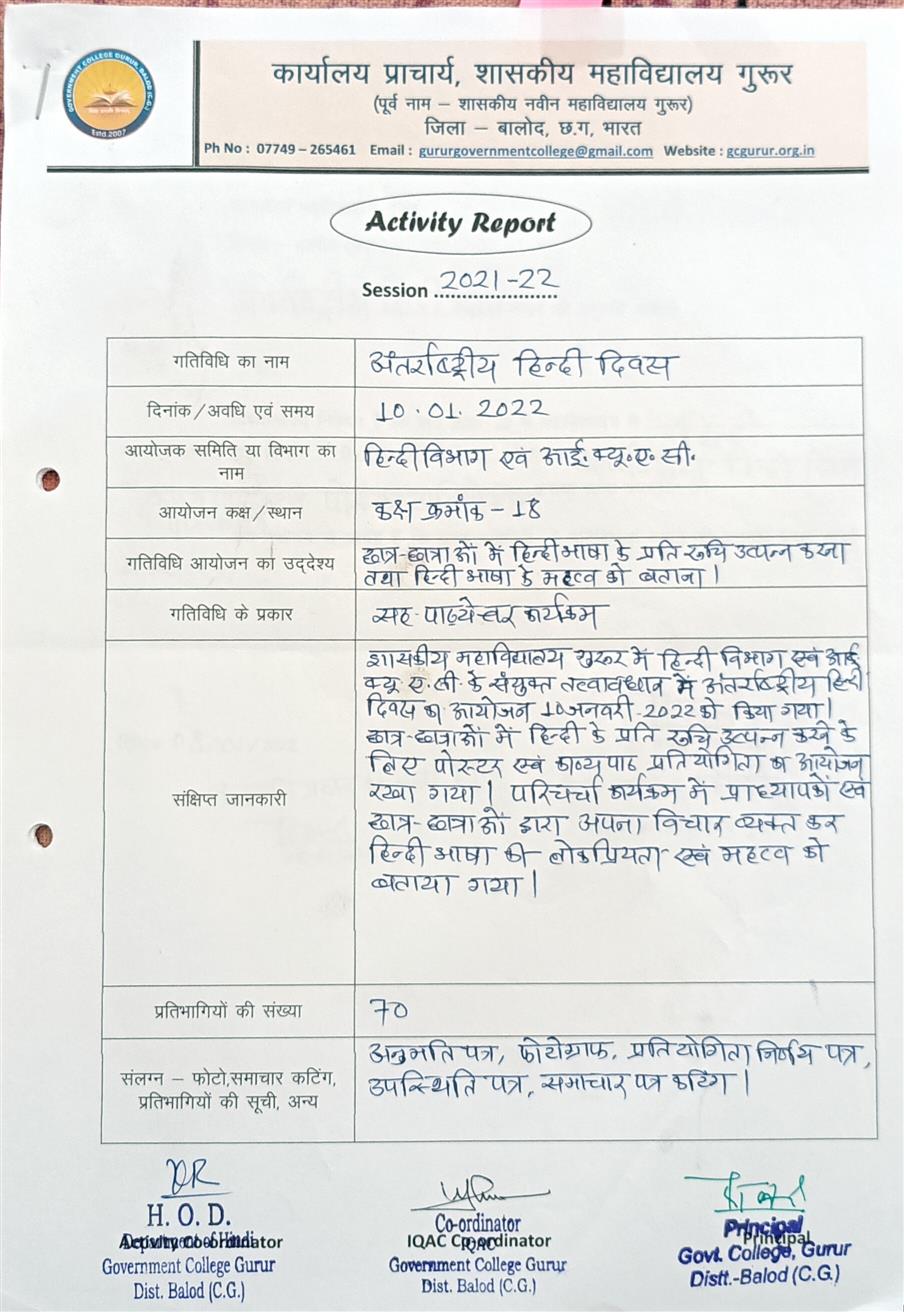 GOVERNMENT COLLEGE GURUR, BALOD (C.G.)
Estd. 2007
कार्यालय प्राचार्य, शासकीय महाविद्यालय गुरूर
(पूर्व नाम – शासकीय नवीन महाविद्यालय गुरूर)
जिला – बालोद, छ.ग, भारत
Ph No : 07749 – 265461 Email : gururgovernmentcollege@gmail.com Website : gcgurur.org.in
Activity Report
Session 2021-22
गतिविधि का नाम
अंतर्राष्ट्रीय हिन्दी दिवस
दिनांक/अवधि एवं समय
10.01.2022
आयोजक समिति या विभाग का
नाम
हिन्दी विभाग एवं आई.क्यू.ए.सी.
आयोजन कक्ष/स्थान
कक्ष क्रमांक – 18
गतिविधि आयोजन का उद्देश्य
छात्र-छात्राओं में हिन्दी भाषा के प्रति रुचि उत्पन्न करना
तथा हिन्दी भाषा के महत्व को बताना।
गतिविधि के प्रकार
सह-पाठ्येत्तर कार्यक्रम
संक्षिप्त जानकारी
शासकीय महाविद्यालय गुरूर में हिन्दी विभाग एवं आई.
क्यू.ए.सी. के संयुक्त तत्वावधान में अंतर्राष्ट्रीय हिन्दी
दिवस का आयोजन 10 जनवरी-2022 को किया गया।
छात्र-छात्राओं में हिन्दी के प्रति रुचि उत्पन्न करने के
लिए पोस्टर एवं काव्यपाठ प्रतियोगिता का आयोजन
रखा गया। परिचर्चा कार्यक्रम में प्राध्यापकों एवं
छात्र-छात्राओं द्वारा अपना विचार व्यक्त कर
हिन्दी भाषा की लोकप्रियता एवं महत्व को
बताया गया।
प्रतिभागियों की संख्या
70
संलग्न – फोटो,समाचार कटिंग,
प्रतिभागियों की सूची, अन्य
अनुमति पत्र, फोटोग्राफ, प्रतियोगिता निर्णय पत्र,
उपस्थिति पत्र, समाचार पत्र कटिंग।
H. O. D.
Department of Hindi
Activity Co-ordinator
Government College Gurur
Dist. Balod (C.G.)
Co-ordinator
IQAC
IQAC Co-ordinator
Government College Gurur
Dist. Balod (C.G.)
Principal
Principal
Govt. College, Gurur
Distt.-Balod (C.G.)